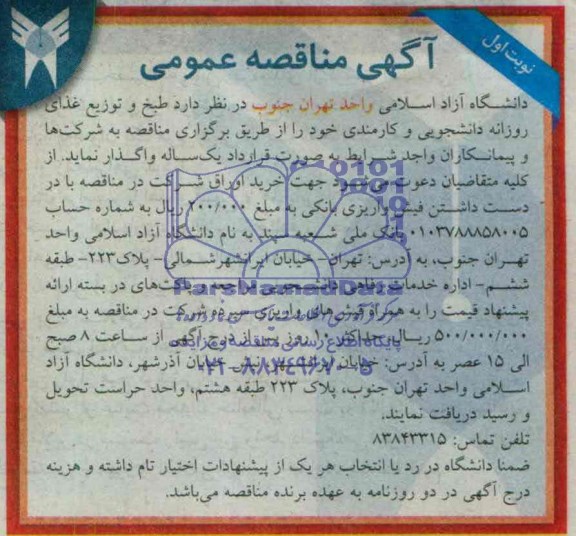 نوبت اول
آگهی مناقصه عمومی
دانشگاه آزاد اسلامی واحد تهران جنوب در نظر دارد طبخ و توزیع غذای
روزانه دانشجویی و کارمندی خود را از طریق برگزاری مناقصه به شرکت‌ها
و پیمانکاران واجد شرایط به صورت قرارداد یک‌ساله واگذار نماید. از
کلیه متقاضیان دعوت می‌شود جهت خرید اوراق شرکت در مناقصه با در
دست داشتن فیش واریزی بانکی به مبلغ ۲۰۰/۰۰۰ ریال به شماره حساب
۰۱۰۳۷۸۸۸۵۸۰۰۵ بانک ملی شعبه سپند به نام دانشگاه آزاد اسلامی واحد
تهران جنوب، به آدرس: تهران- خیابان ایرانشهرشمالی- پلاک۲۲۳- طبقه
ششم- اداره خدمات رفاهی دانشجویی مراجعه و پاکت‌های در بسته ارائه
پیشنهاد قیمت را به همراه فیش‌های واریزی سپرده شرکت در مناقصه به مبلغ
۵۰۰/۰۰۰/۰۰۰ ریال حداکثر ۱۰ روز پس از درج آگهی از ساعت ۸ صبح
الی ۱۵ عصر به آدرس: خیابان نبش خیابان آذرشهر، دانشگاه آزاد
اسلامی واحد تهران جنوب، پلاک ۲۲۳ طبقه هشتم، واحد حراست تحویل
و رسید دریافت نمایند.
تلفن تماس: ۸۳۸۴۳۳۱۵
ضمنا دانشگاه در رد یا انتخاب هر یک از پیشنهادات اختیار تام داشته و هزینه
درج آگهی در دو روزنامه به عهده برنده مناقصه می‌باشد.
0101
0001
ParsNamadData
پایگاه اطلاع رسانی مناقصه و مزایده
۰۲۱-۸۸۳۴۹۶۷۰-۵